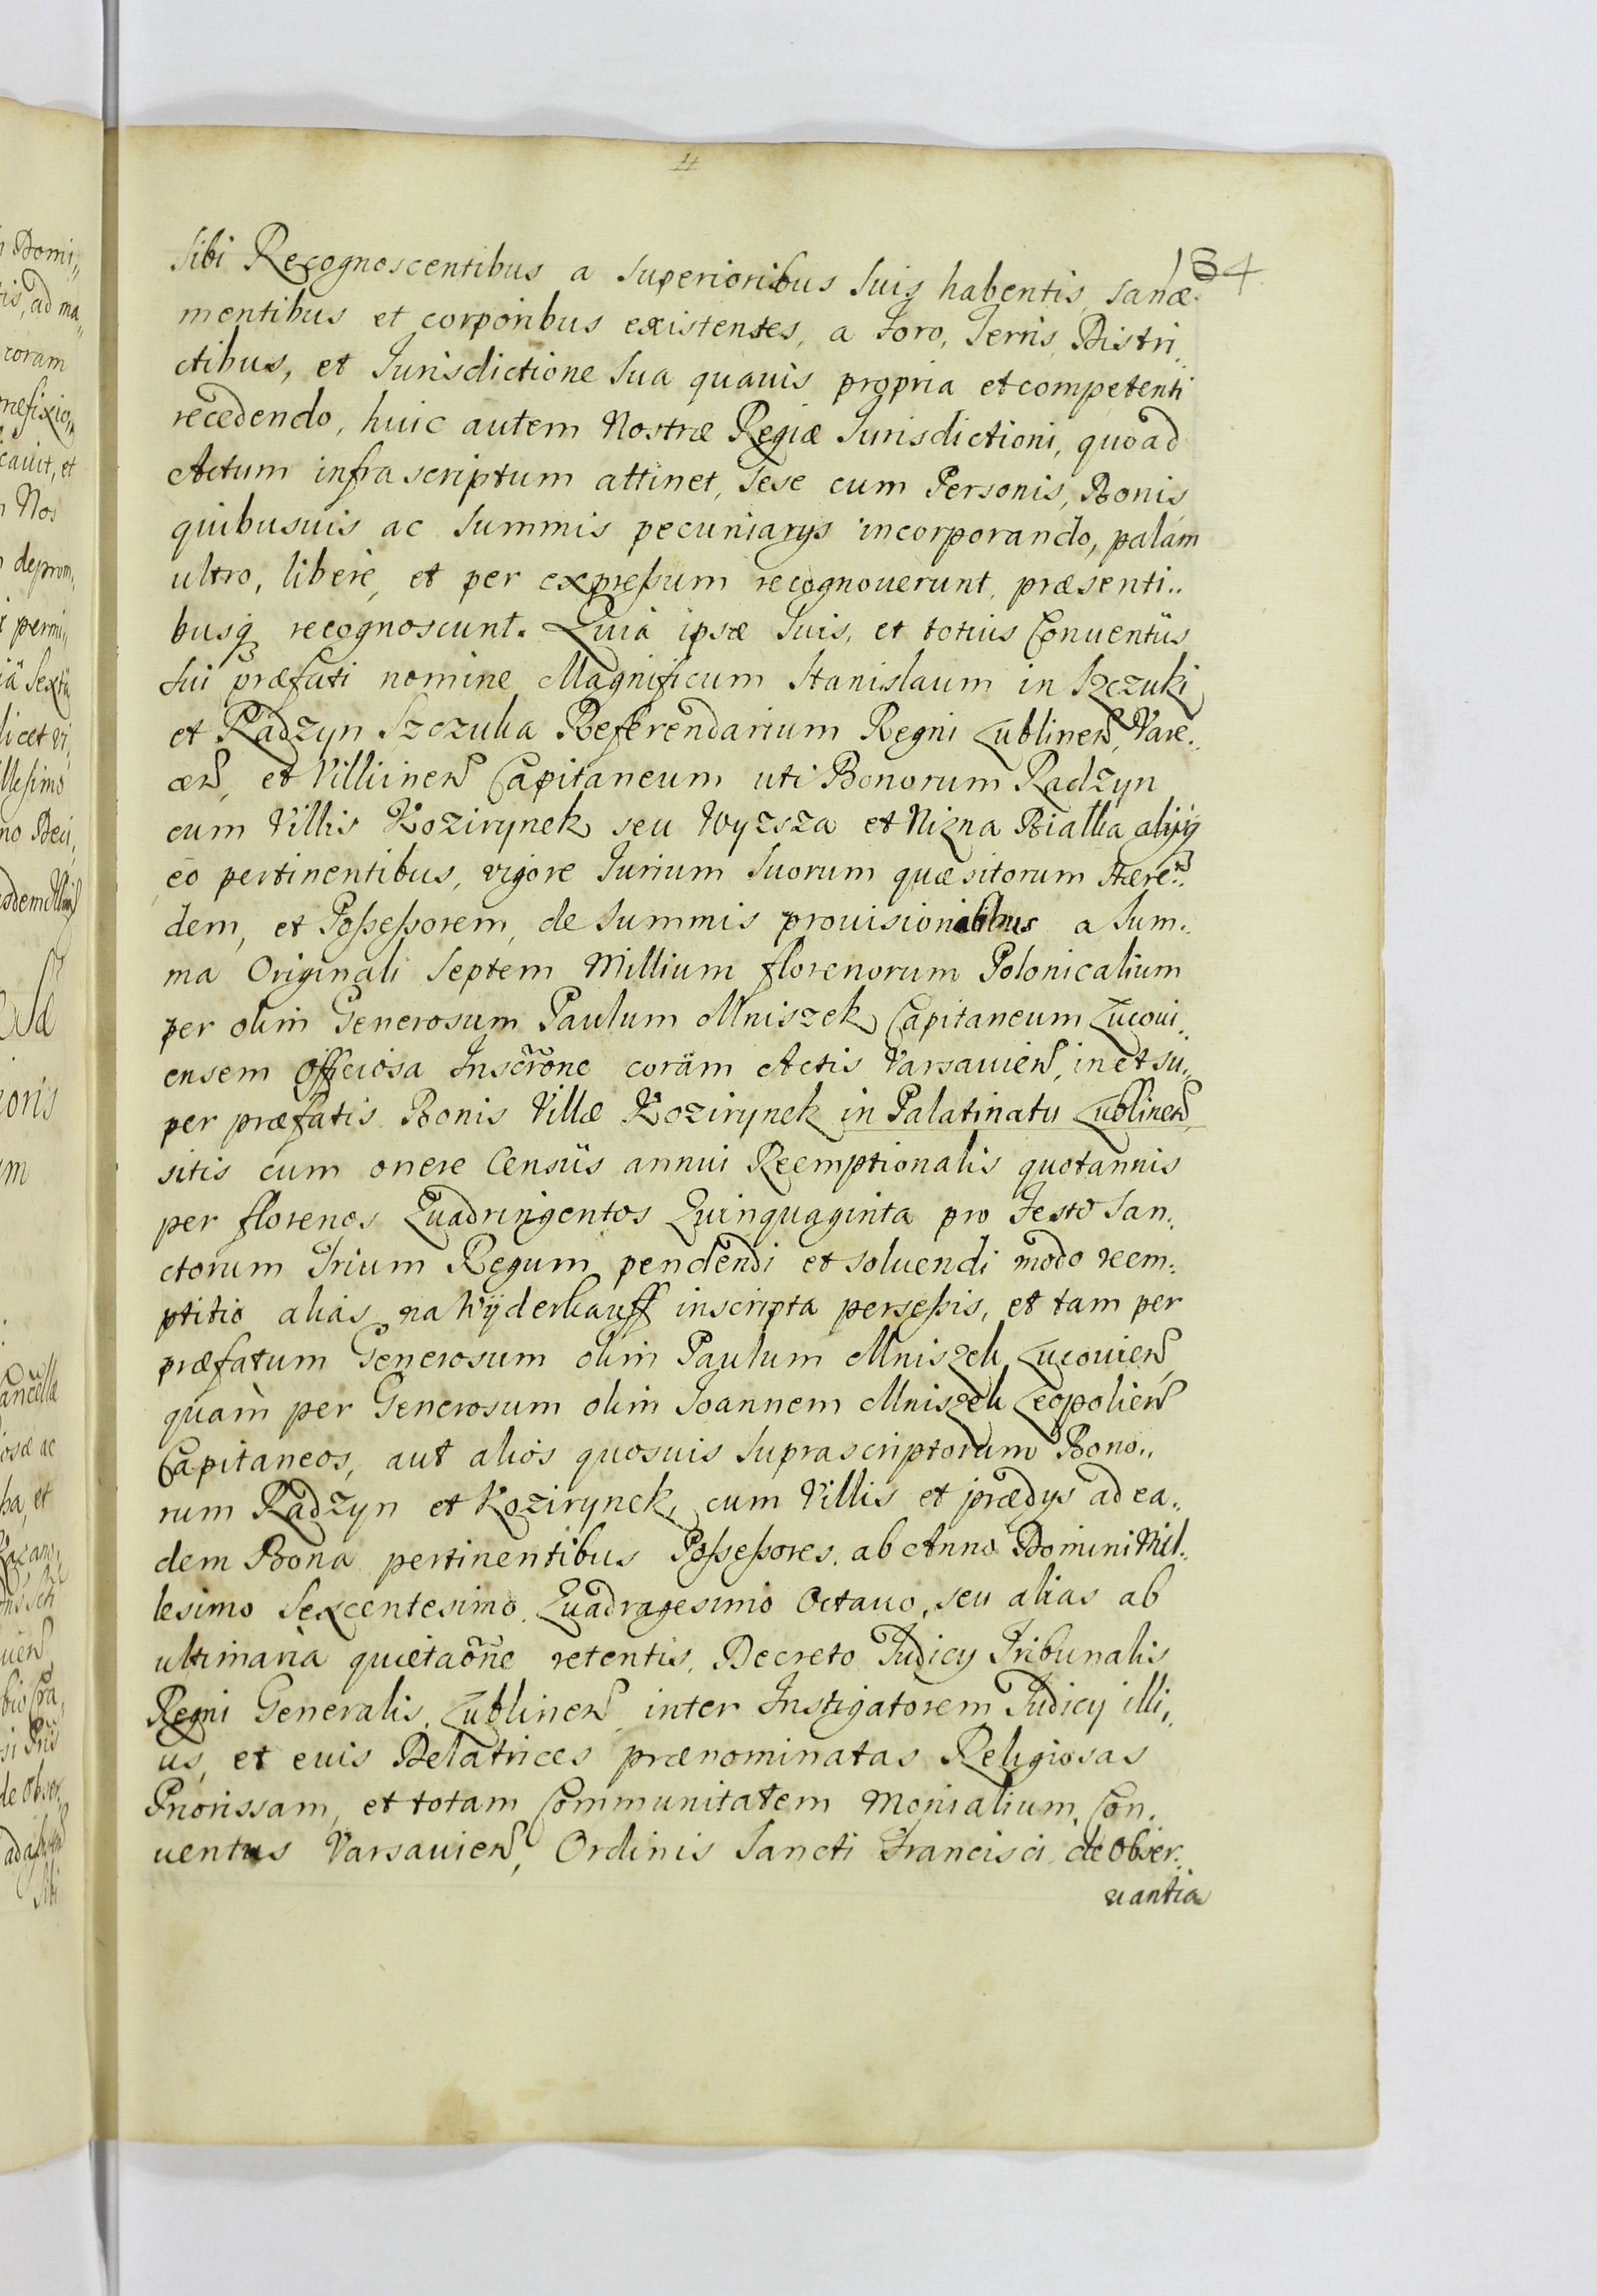 134
Sibi Recognoscentibus a Superioribus Suis habentis, Sanæ
mentibus et corporibus existentes, a Foro, Terris, Distri„
ctibus, et Jurisdictione Sua quavis propria et competenti
recedendo, huic autem Nostræ Regiæ Jurisdictioni, quoad
Actum infrascriptum attinet, Sese cum Personis, Bonis
quibusuis ac Summis pecuniarys incorporando, palám
ultro, liberè, et per expreſsum recognouerunt, præsenti„
busq recognoscunt. Quia ipsæ Suis, et totius Conuentûs
Sui præfati nomine Magnificum Stanislaum in Szczuki
et Radzyn Szczuka Referendarium Regni Lublinen, Vare„
cen, et Villuinen Capitaneum uti Bonorum Radzyn
cum Villis Kozirynek seu Wyzsza et Nizna Bialka alijsq
eò pertinentibus, vigore Jurium Suorum quæsitorum Hære„
dem, et Poſseſsorem, de Summis prouisionalibus a Sum„
ma Originali Septem Millium florenorum Polonicalium
per olim Generosum Paulum Mniszek Capitaneum Lucoui„
ensem officiosa Inscrõne coràm Actis Varsauien, in et su„
per præfatis Bonis Villæ Kozirynek in Palatinatu Lublinen
sitis cum onere Censûs annui Reemptionalis quotannis
per florenos Quadringentos Quinquaginta pro Festo San„
ctorum Trium Regum pendendi et soluendi modo reem„
ptitio alias na Wÿderkauff inscripta perseſsis, et tam per
præfatum Generosum olim Paulum Mniszek Lucouien
quàm per Generosum olim Joannem Mniszek Leopolien
Capitaneos, aut aliòs quosuis Suprascriptorum Bono„
rum Radzyn et Kozirynek, cum Villis et prædys ad ea„
dem Bona pertinentibus Poſseſsores, ab Anno Domini Mil„
lesimo Sexcentesimo Quadragesimo Octauo, seu alias ab
ultimaria quietaõne retentis, Decreto Judicy Tribunalis
Regni Generalis Lublinen inter Instigatorem Judicy illi„
us, et euis Delatrices prænominatas Religiosas
Priorissam, et totam Communitatem Monialium Con„
uentus Varsauien, Ordinis Sancti Francisci de Obser„
uantia